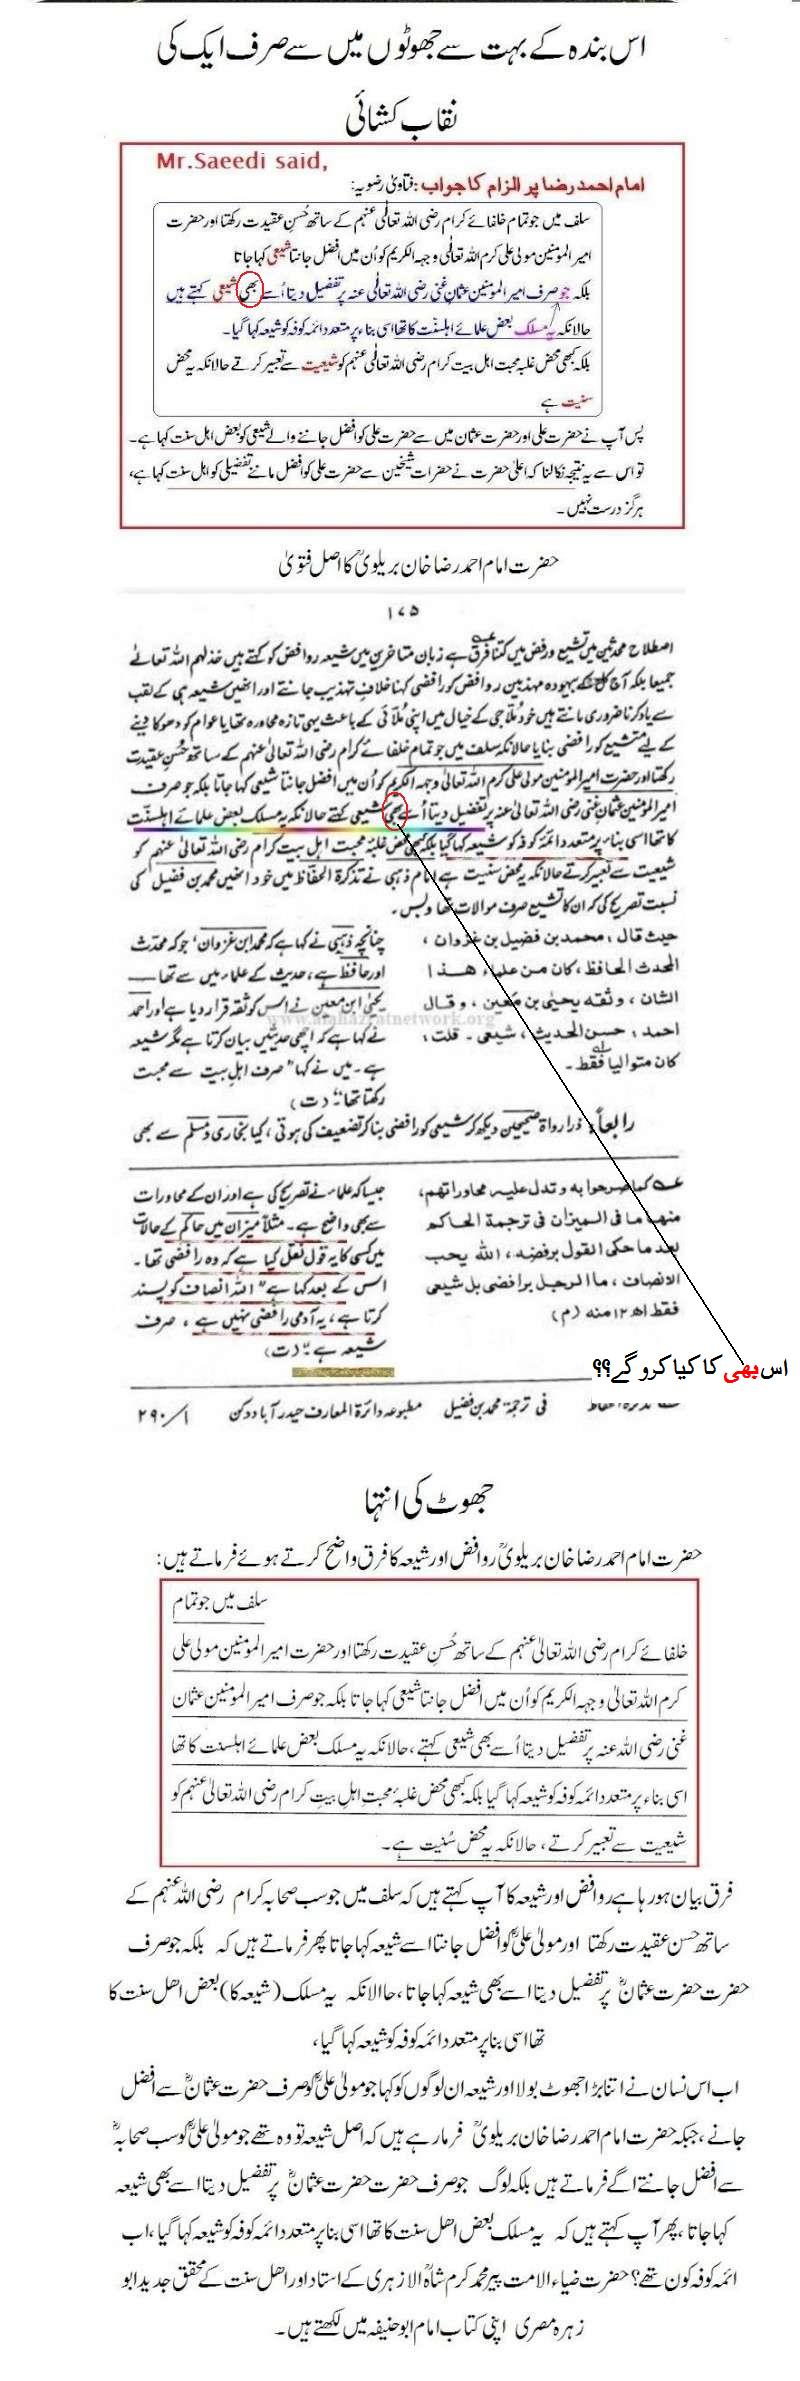 اس بندہ کے بہت سے جھوٹوں میں سے صرف ایک کی
نقاب کشائی
Mr.Saeedi said,
امام احمد رضا پر الزام کا جواب: فتاویٰ رضویہ:
سلف میں جو تمام خلفائے کرام رضی اللہ تعالٰی عنہم کے ساتھ حُسنِ عقیدت رکھتا اور حضرت
امیر المومنین مولٰی علی کرم اللہ تعالٰی وجہہ الکریم کو اُن میں افضل جانتا شیعی کہا جاتا
بلکہ جو صرف امیر المومنین عثمان غنی رضی اللہ تعالٰی عنہ پر تفضیل دیتا اُسے بھی شیعی کہتے ہیں
حالانکہ یہ مسلک بعض علمائے اہلسنّت کا تھا اسی بناء پر متعدد ائمہ کوفہ کو شیعہ کہا گیا۔
بلکہ کبھی محض غلبہ محبت اہل بیت کرام رضی اللہ تعالٰی عنہم کو شیعیت سے تعبیر کرتے حالانکہ یہ محض
سنیت ہے
پس آپ نے حضرت علی اور حضرت عثمان میں سے حضرت علی کو افضل جاننے والے شیعی کو بعض اہل سنت کہا ہے۔
تو اس سے یہ نتیجہ نکالنا کہ اعلیٰ حضرت نے حضرات شیخین سے حضرت علی کو افضل ماننے تفضیلی کو اہل سنت کہا ہے،
ہرگز درست نہیں۔
حضرت امام احمد رضا خان بریلویؒ کا اصل فتویٰ
۱۷۵
اصطلاح محدثین میں تشیع و رفض میں کتنا فرق ہے زبان متاخرین میں شیعہ روافض کو کہتے ہیں خذلہم اللہ تعالٰے
جمیعا بلکہ آج کل کے بیہودہ مہذبین روافض کو رافضی کہنا خلافِ تہذیب جانتے اور انھیں شیعہ ہی کے لقب
سے یاد کرنا ضروری مانتے ہیں خود مُلّاجی کے خیال میں اپنی مُلّائی کے باعث یہی تازہ محاورہ تھا یا عوام کو دھوکا دینے
کے لیے متشیع کو رافضی بنایا حالانکہ سلف میں جو تمام خلفائے کرام رضی اللہ تعالٰی عنہم کے ساتھ حُسنِ عقیدت
رکھتا اور حضرت امیر المومنین مولٰی علی کرم اللہ تعالٰی وجہہ الکریم کو اُن میں افضل جانتا شیعی کہا جاتا بلکہ جو صرف
امیر المومنین عثمان غنی رضی اللہ تعالٰی عنہ پر تفضیل دیتا اُسے بھی شیعی کہتے حالانکہ یہ مسلک بعض علمائے اہلسنّت
کا تھا اسی بناء پر متعدد ائمہ کوفہ کو شیعہ کہا گیا بلکہ کبھی محض غلبۂ محبت اہل بیت کرام رضی اللہ تعالٰی عنہم کو
شیعیت سے تعبیر کرتے حالانکہ یہ محض سنیت ہے امام ذہبی نے تذکرۃ الحفاظ میں خود انھیں محمد بن فضیل کی
نسبت تصریح کی کہ ان کا تشیع صرف موالات تھا وبس۔
حیث قال، محمد بن فضیل بن غزوان،
المحدث الحافظ، کان من علماء ھذا
الشان، وثقہ یحیٰی بن معین، وقال
احمد، حسن الحدیث، شیعی۔ قلت،
کان متوالیا فقط۔
چنانچہ ذہبی نے کہا ہے کہ محمد ابن غزوان، جو کہ محدّث
اور حافظ ہے، حدیث کے علماء میں سے تھا
یحیٰی ابن معین نے اس کو ثقہ قرار دیا ہے اور احمد
نے کہا ہے کہ اچھی حدیثیں بیان کرتا ہے مگر شیعہ
ہے۔ میں نے کہا "صرف اہلِ بیت سے محبت
رکھتا تھا"۔ (ت)
www.alahazratnetwork.org
رابعاً: ذرا رواۃ صحیحین دیکھ کر شیعی کو رافضی بنا کر تضعیف کی ہوتی، کیا بخاری و مسلم سے بھی
عہ کما صرحوا بہ و تدل علیہ محاوراتھم،
منھا ما فی المیزان فی ترجمۃ الحاکم
بعد ما حکی القول برفضہ، اللہ یحب
الانصاف، ما الرجل برافضی بل شیعی
فقط اھ ۱۲ منہ (م)
جیسا کہ علماء نے تصریح کی ہے اور ان کے محاورات
سے بھی واضح ہے۔ مثلاً میزان میں حاکم کے حالات
میں کسی کا یہ قول نقل کیا ہے کہ وہ رافضی تھا۔
اس کے بعد کہا ہے "اللہ انصاف کو پسند
کرتا ہے، یہ آدمی رافضی نہیں ہے، صرف
شیعہ ہے"۔ (ت)
اس بھی کا کیا کرو گے؟؟
فی ترجمۃ محمد بن فضیل مطبوعہ دائرۃ المعارف حیدر آباد دکن ۱/۲۹۰
جھوٹ کی انتہا
حضرت امام احمد رضا خان بریلویؒ روافض اور شیعہ کا فرق واضح کرتے ہوئے فرماتے ہیں:
سلف میں جو تمام
خلفائے کرام رضی اللہ تعالٰی عنہم کے ساتھ حُسنِ عقیدت رکھتا اور حضرت امیر المومنین مولٰی علی
کرم اللہ تعالٰی وجہہ الکریم کو اُن میں افضل جانتا شیعی کہا جاتا بلکہ جو صرف امیر المومنین عثمان
غنی رضی اللہ عنہ پر تفضیل دیتا اُسے بھی شیعی کہتے، حالانکہ یہ مسلک بعض علمائے اہلسنت کا تھا
اسی بناء پر متعدد ائمہ کوفہ کو شیعہ کہا گیا بلکہ کبھی محض غلبۂ محبتِ اہلِ بیتِ کرام رضی اللہ تعالٰی عنہم کو
شیعیت سے تعبیر کرتے، حالانکہ یہ محض سُنیت ہے۔
فرق بیان ہو رہا ہے روافض اور شیعہ کا آپ کہتے ہیں کہ سلف میں جو سب صحابہ کرام رضی اللہ عنہم کے
ساتھ حسن عقیدت رکھتا اور مولیٰ علیؓ کو افضل جانتا اسے شیعہ کہا جاتا پھر فرماتے ہیں کہ بلکہ جو صرف
حضرت حضرت عثمانؓ پر تفضیل دیتا اسے بھی شیعہ کہا جاتا، حاالانکہ یہ مسلک (شیعہ کا) بعض اھل سنت کا
تھا اسی بنا پر متعدد ائمہ کوفہ کو شیعہ کہا گیا،
اب اس نسان نے اتنا بڑا جھوٹ بولا اور شیعہ ان لوگوں کو کہا جو مولیٰ علیؓ کو صرف حضرت عثمانؓ سے افضل
جانے، جبکہ حضرت امام احمد رضا خان بریلویؒ فرما رہے ہیں کہ اصل شیعہ تو وہ تھے جو مولیٰ علیؓ کو سب صحابہؓ
سے افضل جانتے اگے فرماتے ہیں بلکہ لوگ جو صرف حضرت حضرت عثمانؓ پر تفضیل دیتا اسے بھی شیعہ
کہا جاتا، پھر آپ کہتے ہیں کہ یہ مسلک بعض اھل سنت کا تھا اسی بنا پر متعدد ائمہ کوفہ کو شیعہ کہا گیا، اب
ائمہ کوفہ کون تھے؟ حضرت ضیاء الامت پیر محمد کرم شاہؒ الازہری کے استاد اور اھل سنت کے محقق جدید ابو
زہرہ مصری اپنی کتاب امام ابو حنیفہ میں لکھتے ہیں۔